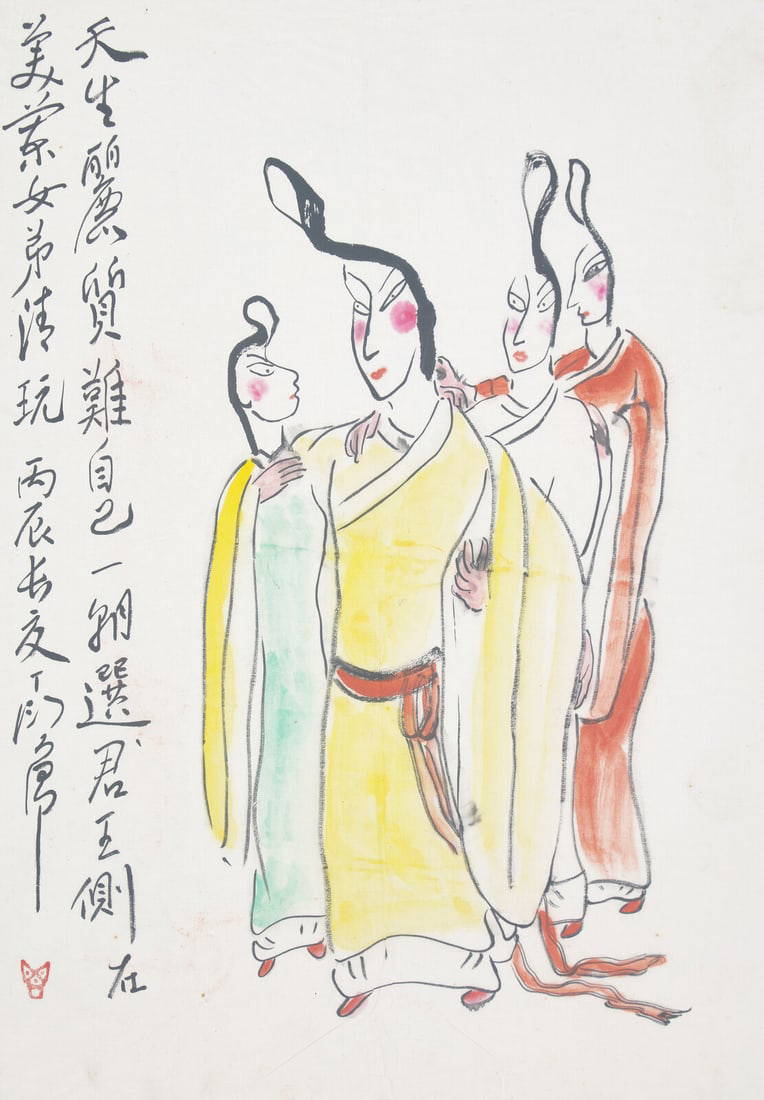 天生麗質難自己一朝選君王側在
美蘭女弟清玩 丙辰長夏 丁衍庸